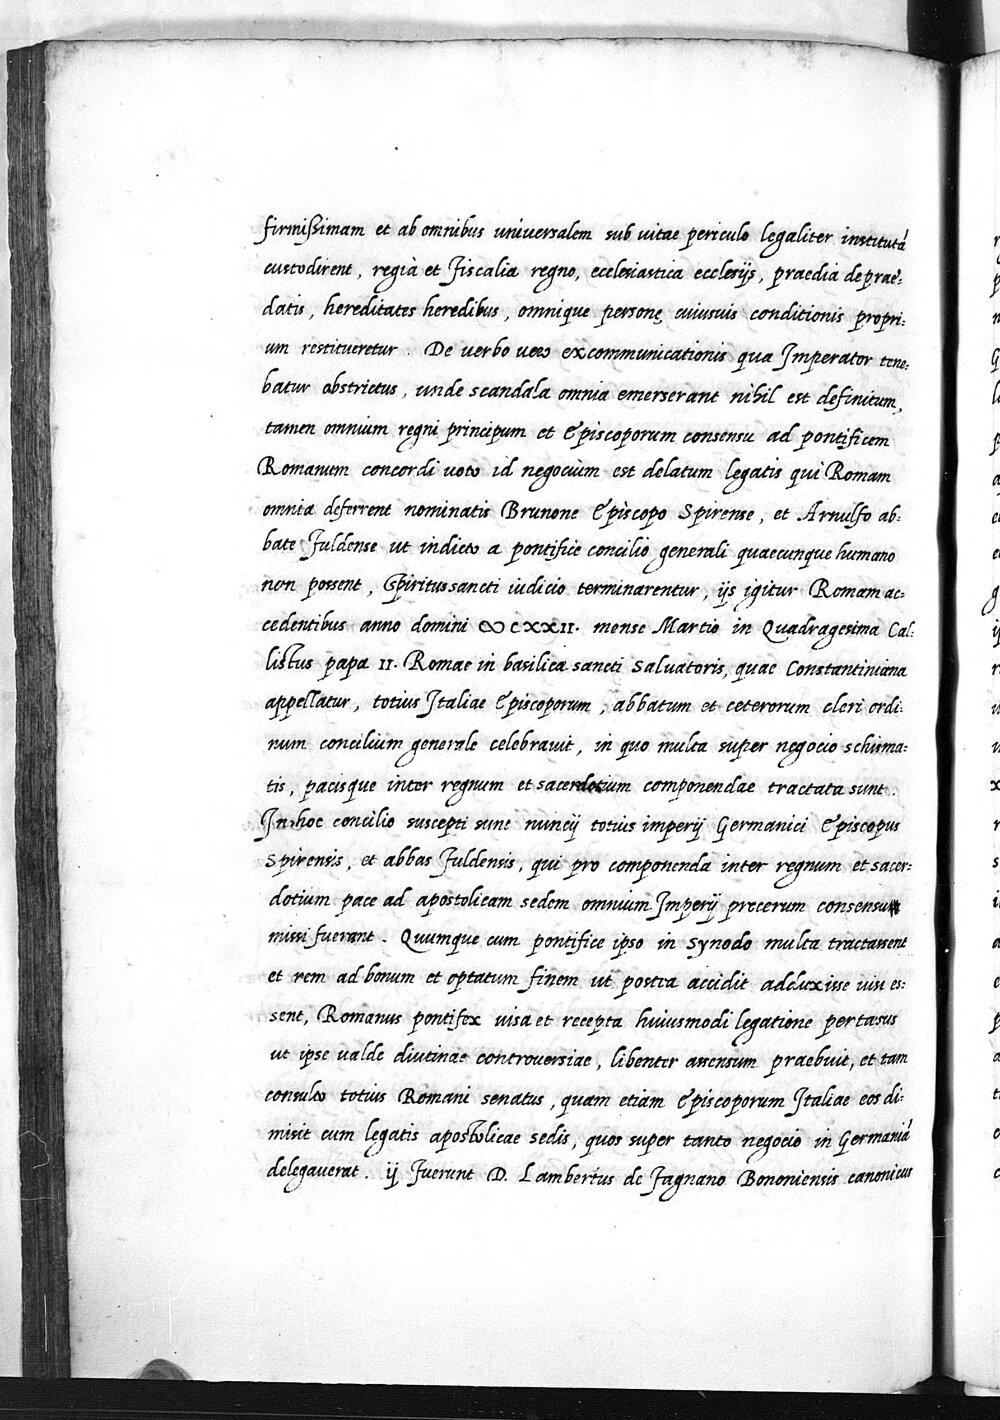 firmissimam et ab omnibus universalem sub vitae periculo legaliter institutá
custodirent, regia et Fiscalia regno, ecclesiastica ecclesijs, praedia deprae-
datis, hereditates heredibus, omnique personę cuiusuis conditionis propri-
um restitueretur. De verbo uero excommunicationis qua Imperator tene-
batur obstrictus, unde scandala omnia emerserant nihil est definitum,
tamen omnium regni principum et Episcoporum consensu ad pontificem
Romanum concordi uoto id negocium est delatum legatis qui Romam
omnia deferrent nominatis Brunone Episcopo Spirense, et Arnulfo ab-
bate Fuldense ut indicto a pontifice concilio generali quaecunque humano
non possent, Spiritus sancti iudicio terminarentur, ijs igitur Romam ac-
cedentibus anno domini ꝏCXXII. mense Martio in Quadragesima Cal-
listus papa II. Romae in basilica sancti Salvatoris, quae Constantiniana
appellatur, totius Italiae Episcoporum, abbatum et ceterorum cleri ordi-
num concilium generale celebrauit, in quo multa super negocio schisma-
tis, pacisque inter regnum et sacerdotium componendae tractata sunt.
In hoc concilio suscepti sunt nuncij totius imperij Germanici Episcopus
Spirensis, et abbas Fuldensis, qui pro componenda inter regnum et sacer-
dotium pace ad apostolicam sedem omnium Imperij procerum consensu
missi fuerant. Quumque cum pontifice ipso in Synodo multa tractassent
et rem ad bonum et optatum finem ut postea accidit adduxisse uisi es-
sent, Romanus pontifex uisa et recepta huiusmodi legatione pertaesus
ut ipse ualde diutinae controversiae, libenter assensum praebuit, et tam
consulto totius Romani senatus, quam etiam Episcoporum Italiae eos di-
misit cum legatis apostolicae sedis, quos super tanto negocio in Germaniá
delegaverat. ij Fuerunt D. Lambertus de Fagnano Bononiensis canonicus